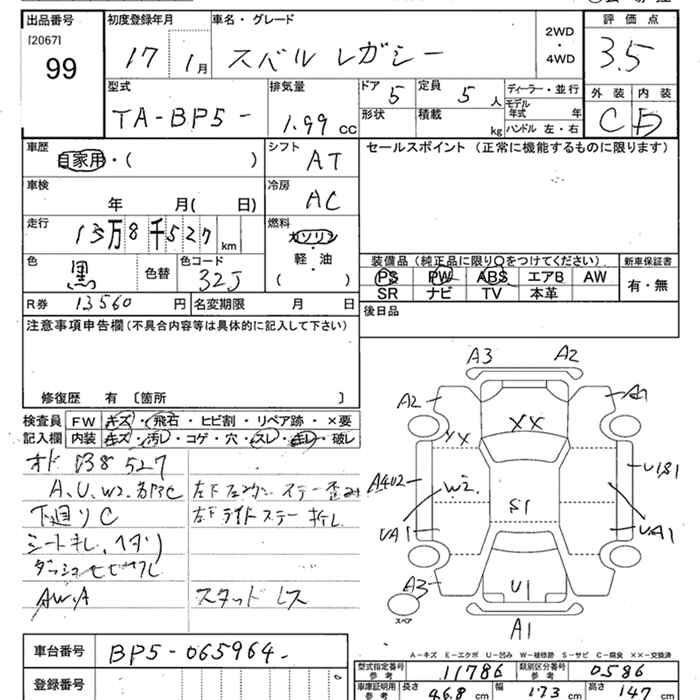 出品番号 初度登録年月 車名・グレード 2WD・4WD 評価点
[2067] 99 17 1月 スバル レガシー 3.5
型式 排気量 ドア 5 定員 5人 ディーラー・並行 外装 内装
TA-BP5- 1.99 cc 形状 積載 kg モデル年式 年 C D
ハンドル 左・右
車歴 自家用・( ) シフト AT セールスポイント (正常に機能するものに限ります)
車検 年 月( 日) 冷房 AC
走行 13万8千527 km 燃料 ガソリン・軽油 ( )
色 黒 色替 色コード 32J
装備品(純正品に限り○をつけてください) 新車保証書
PS PW ABS エアB AW 有・無
SR ナビ TV 本革
R券 13560 円 名変期限 月 日 後日品
注意事項申告欄(不具合内容等は具体的に記入して下さい)
修復歴 有 〔箇所 〕
検査員 FW キズ・飛石・ヒビ割・リペア跡・×要
記入欄 内装 キズ・汚レ・コゲ・穴・スレ・キレ・破レ
オド 138527
A、U、W2、
下廻りC 左下ライトステー
シートキレ、ヘタリ
AW、A スタッドレス
A3 A2
A2 A1
XX
YY
A402 W2 U1S1
S1
UA1 UA1
A3 U1
スペア A1
A-キズ E-エクボ U-凹み W-補修跡 S-サビ C-腐食 ××-交換済
車台番号 BP5-065964-
登録番号
型式指定番号 参考 11786 類別区分番号 参考 0586
車庫証明用 参考 長さ 468 cm 幅 173 cm 高さ 147 cm